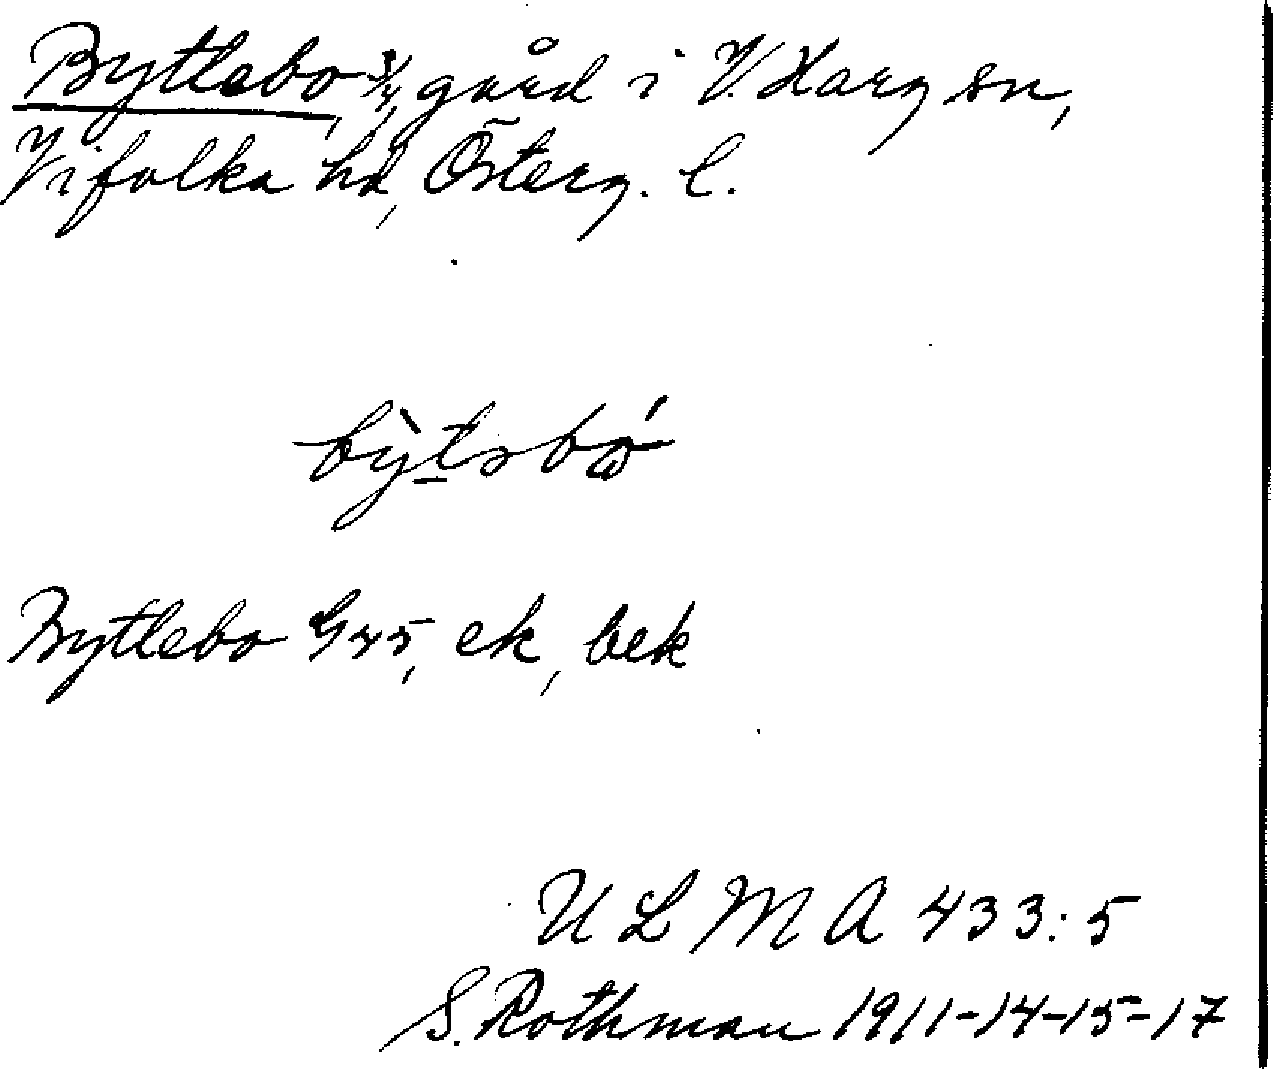 Bytlebo, 3/4 gård i V. Harg sn,
Vifolka hd, Österg. l.
bỳtsbó
Bytlebo G45, ek, bek
U L M A 433:5
S. Rothman 1911-14-15-17